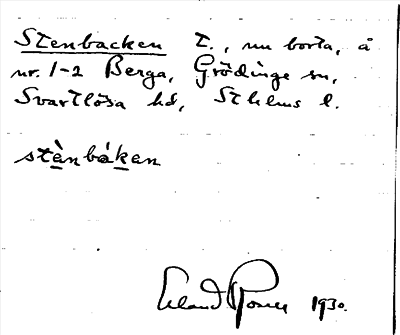 Stenbacken t., nu borta, å
nr. 1-2 Berga, Grödinge sn,
Svartlösa hd, Sthlms l.
stènbákan
Erland Rosell 1930.